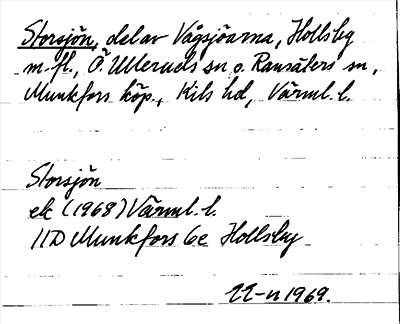 Storsjön, del av Vågsjöarna, Hollsby
m.fl., Ö. Ulleruds sn o. Ransäters sn,
Munkfors köp., Kils hd, Värml. l.
Storsjön
ek (1968) Värml. l.
11D Munkfors 6e Hollsby
1969.